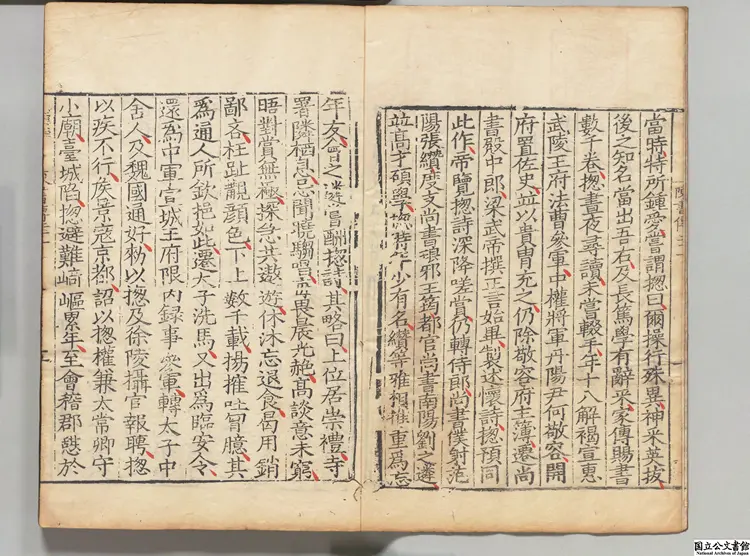 當時特所鍾愛嘗謂摠曰爾操行殊異神采英拔
後之知名當出吾右及長篤學有辭采家傳賜書
數千卷摠晝夜尋讀未嘗輟手年十八解褐宣惠
武陵王府法曹參軍中權將軍丹陽尹何敬容開
府置佐史並以貴胄充之仍除敬容府主簿遷尚
書殿中郎梁武帝撰正言始畢製述懷詩摠預同
此作帝覽摠詩深降嗟賞仍轉侍郎尚書僕射范
陽張纘度支尚書琅邪王筠都官尚書南陽劉之遴
並高才碩學摠時年少有名纘等雅相推重爲忘
年友會之遴嘗酬摠詩其略曰上位居崇禮寺
署隣栖息忌聞曉騶唱每畏晨光赩高談意未窮
晤對賞無極探急共遨遊休沐忘退食曷用銷
鄙吝枉趾覯顏色下上數千載揚搉吐胷臆其
爲通人所欽挹如此遷太子洗馬又出爲臨安令
還爲中軍宣城王府限內録事參軍轉太子中
舍人及魏國通好勑以摠及徐陵攝官報聘摠
以疾不行侯景寇京都詔以摠權兼太常卿守
小廟臺城陷摠避難崎嶇累年至會稽郡憇於
国立公文書館
National Archives of Japan